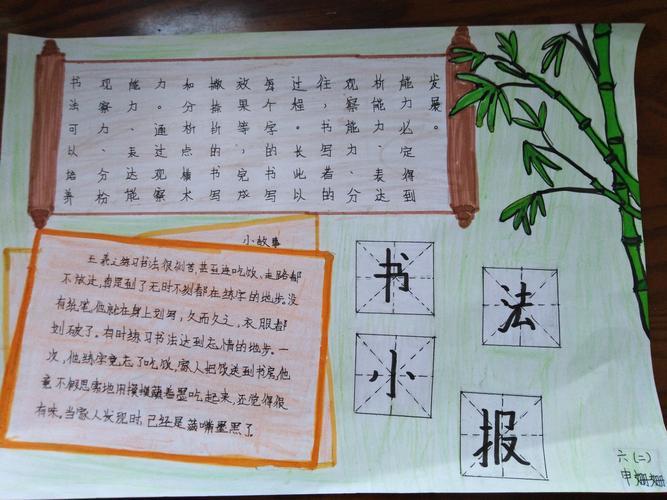 书法可以培养
现察力、分粉
能力、表达能
力。通过观察
如分析点横术
撇捺折的书写
放果等，完成
每个字的书写
过程。长此以
往，书写者的
观察能力、分
析能力、表达
能力必定得到
发展。
小故事
王羲之练习书法很刻苦,甚至连吃饭、走路都
不放过,真是到了无时不刻都在练字的地步。没
有纸笔,他就在身上划写,久而久之,衣服都
划破了。有时练习书法达到忘情的地步。一
次,他练字竟忘了吃饭,家人把饭送到书房,他
竟不假思索地用馍馍蘸着墨吃起来,还觉得很
有味。当家人发现时,已经是满嘴墨黑了。
书法
小报
六(二)
申姗姗